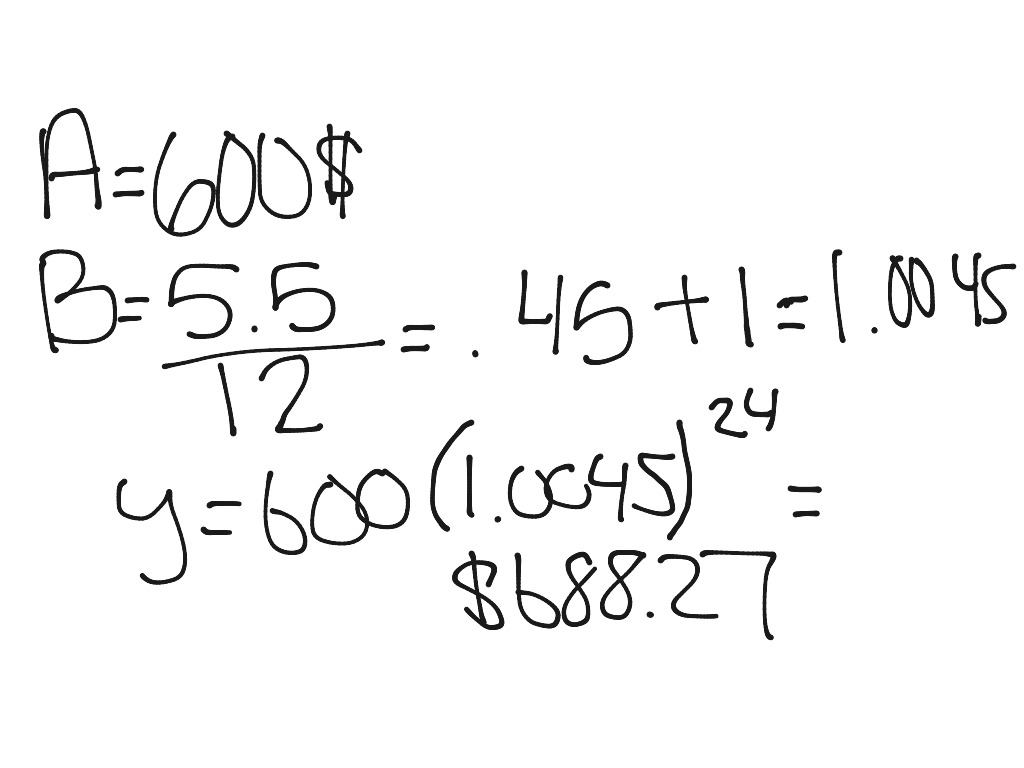 A=600$
B=5.5/12=.45+1=1.0045
y=600(1.0045)^24=
$688.27